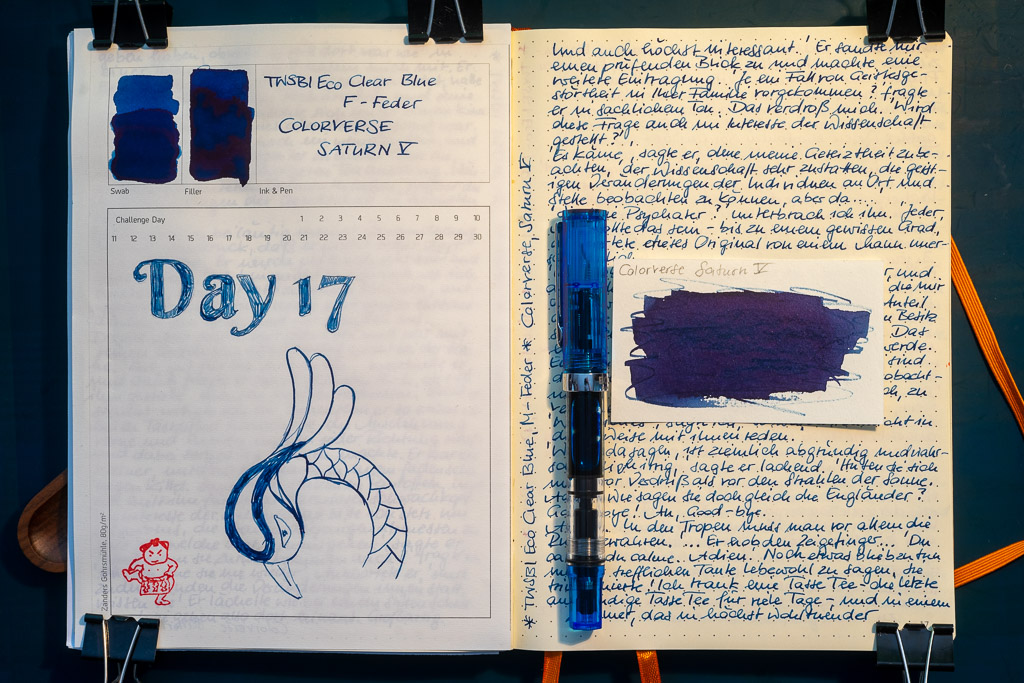 TWSBI Eco Clear Blue
F-Feder
COLORVERSE
SATURN V
Swab
Filler
Ink & Pen
Challenge Day
1 2 3 4 5 6 7 8 9 10
11 12 13 14 15 16 17 18 19 20 21 22 23 24 25 26 27 28 29 30
Day 17
Zanders Gohrsmühle, 80g/m²
* TWSBI Eco Clear Blue, M-Feder * Colorverse, Saturn V
Und auch höchst interessant.' Er sandte mir
einen prüfenden Blick zu und machte eine
weitere Eintragung. 'Je ein Fall von Geistesge-
störtheit in Ihrer Familie vorgekommen?' fragte
er in sachlichen Ton. Das verdroß mich. 'Wird
diese Frage auch im Interesse der Wissenschaft
gestellt?'
'Es käme', sagte er, ohne meine Gereiztheit zu be-
achten, 'der Wissenschaft sehr zustatten, die geisti-
gen Veränderungen der Individuen an Ort und
Stelle beobachten zu können, aber da...'
Psychiater?' unterbrach ich ihn. 'Jeder,
sollte das sein - bis zu einem gewissen Grad,
etete dieses Original von einem Mann uner-
Colorverse Saturn V
und
die mir
Anteil
Besitz
Das
werde.
sind
obacht-
ch, zu
cht in
weise mit Ihnen reden.
da sagen, ist ziemlich abgründig und wahr-
sagte er lachend. 'Hüten Sie sich
vor Verdruß als vor den Strahlen der Sonne.
Wie sagen Sie doch gleich die Engländer?
Good-bye.
In den Tropen muss man vor allem die
wahren.'... Er hob den Zeigefinger... 'Du
calme. Adieu.' Noch etwas blieb zu tun
trefflichen Tante Lebewohl zu sagen. Sie
Ich trank eine Tasse Tee - die letzte
dige Tasse Tee für viele Tage - und in einem
mer, das in höchst wohltuender
17